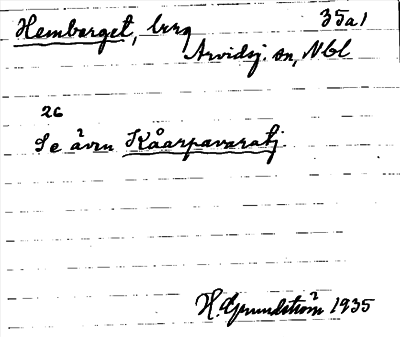 Hemberget, berg 35a1
Arvidsj. sn, Nbl
26
Se även Kåarpavaratj
H. Grundström 1935